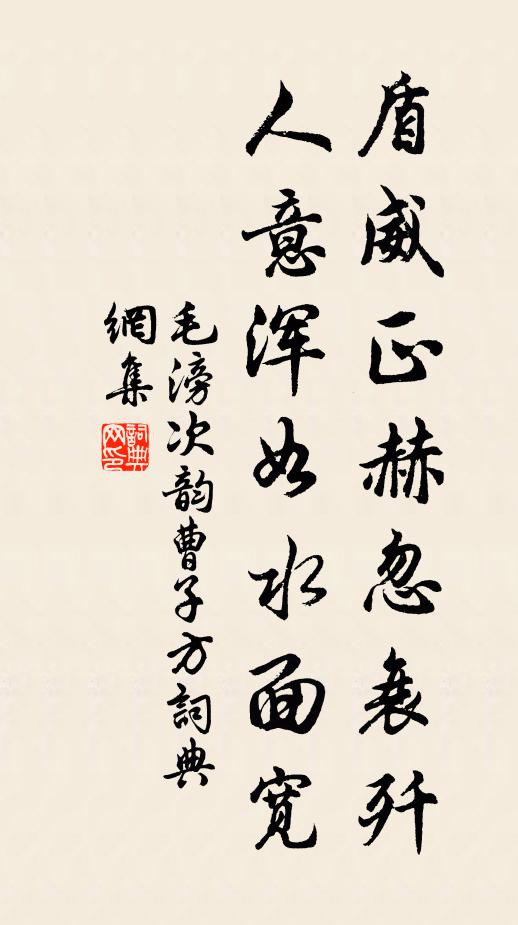 盾威正赫忽衰歼
人意浑如水面宽
毛滂次韵曹子方詞典
網集
詞典
网印